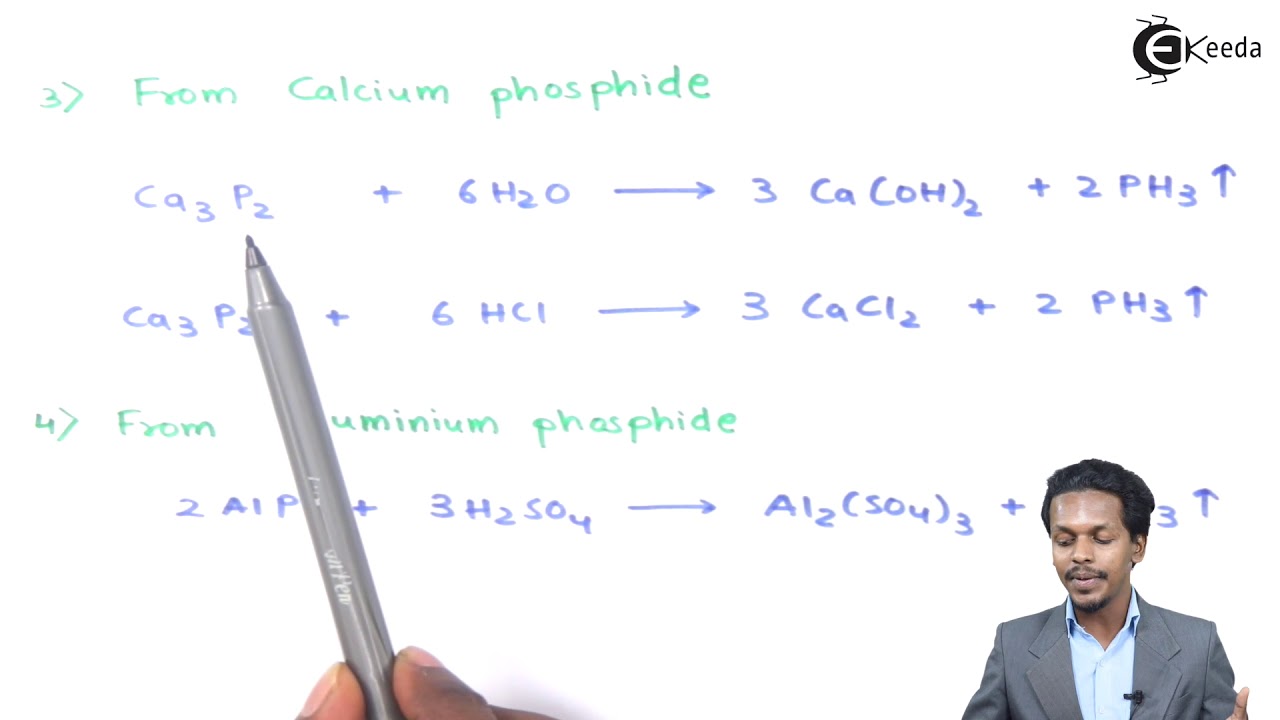 EKeeda
3) From Calcium phosphide
Ca₃P₂ + 6H₂O ⟶ 3 Ca(OH)₂ + 2 PH₃ ↑
Ca₃P₂ + 6 HCl ⟶ 3 CaCl₂ + 2 PH₃ ↑
4) From uminium phosphide
2 AlP + 3H₂SO₄ ⟶ Al₂(SO₄)₃ + ₃ ↑